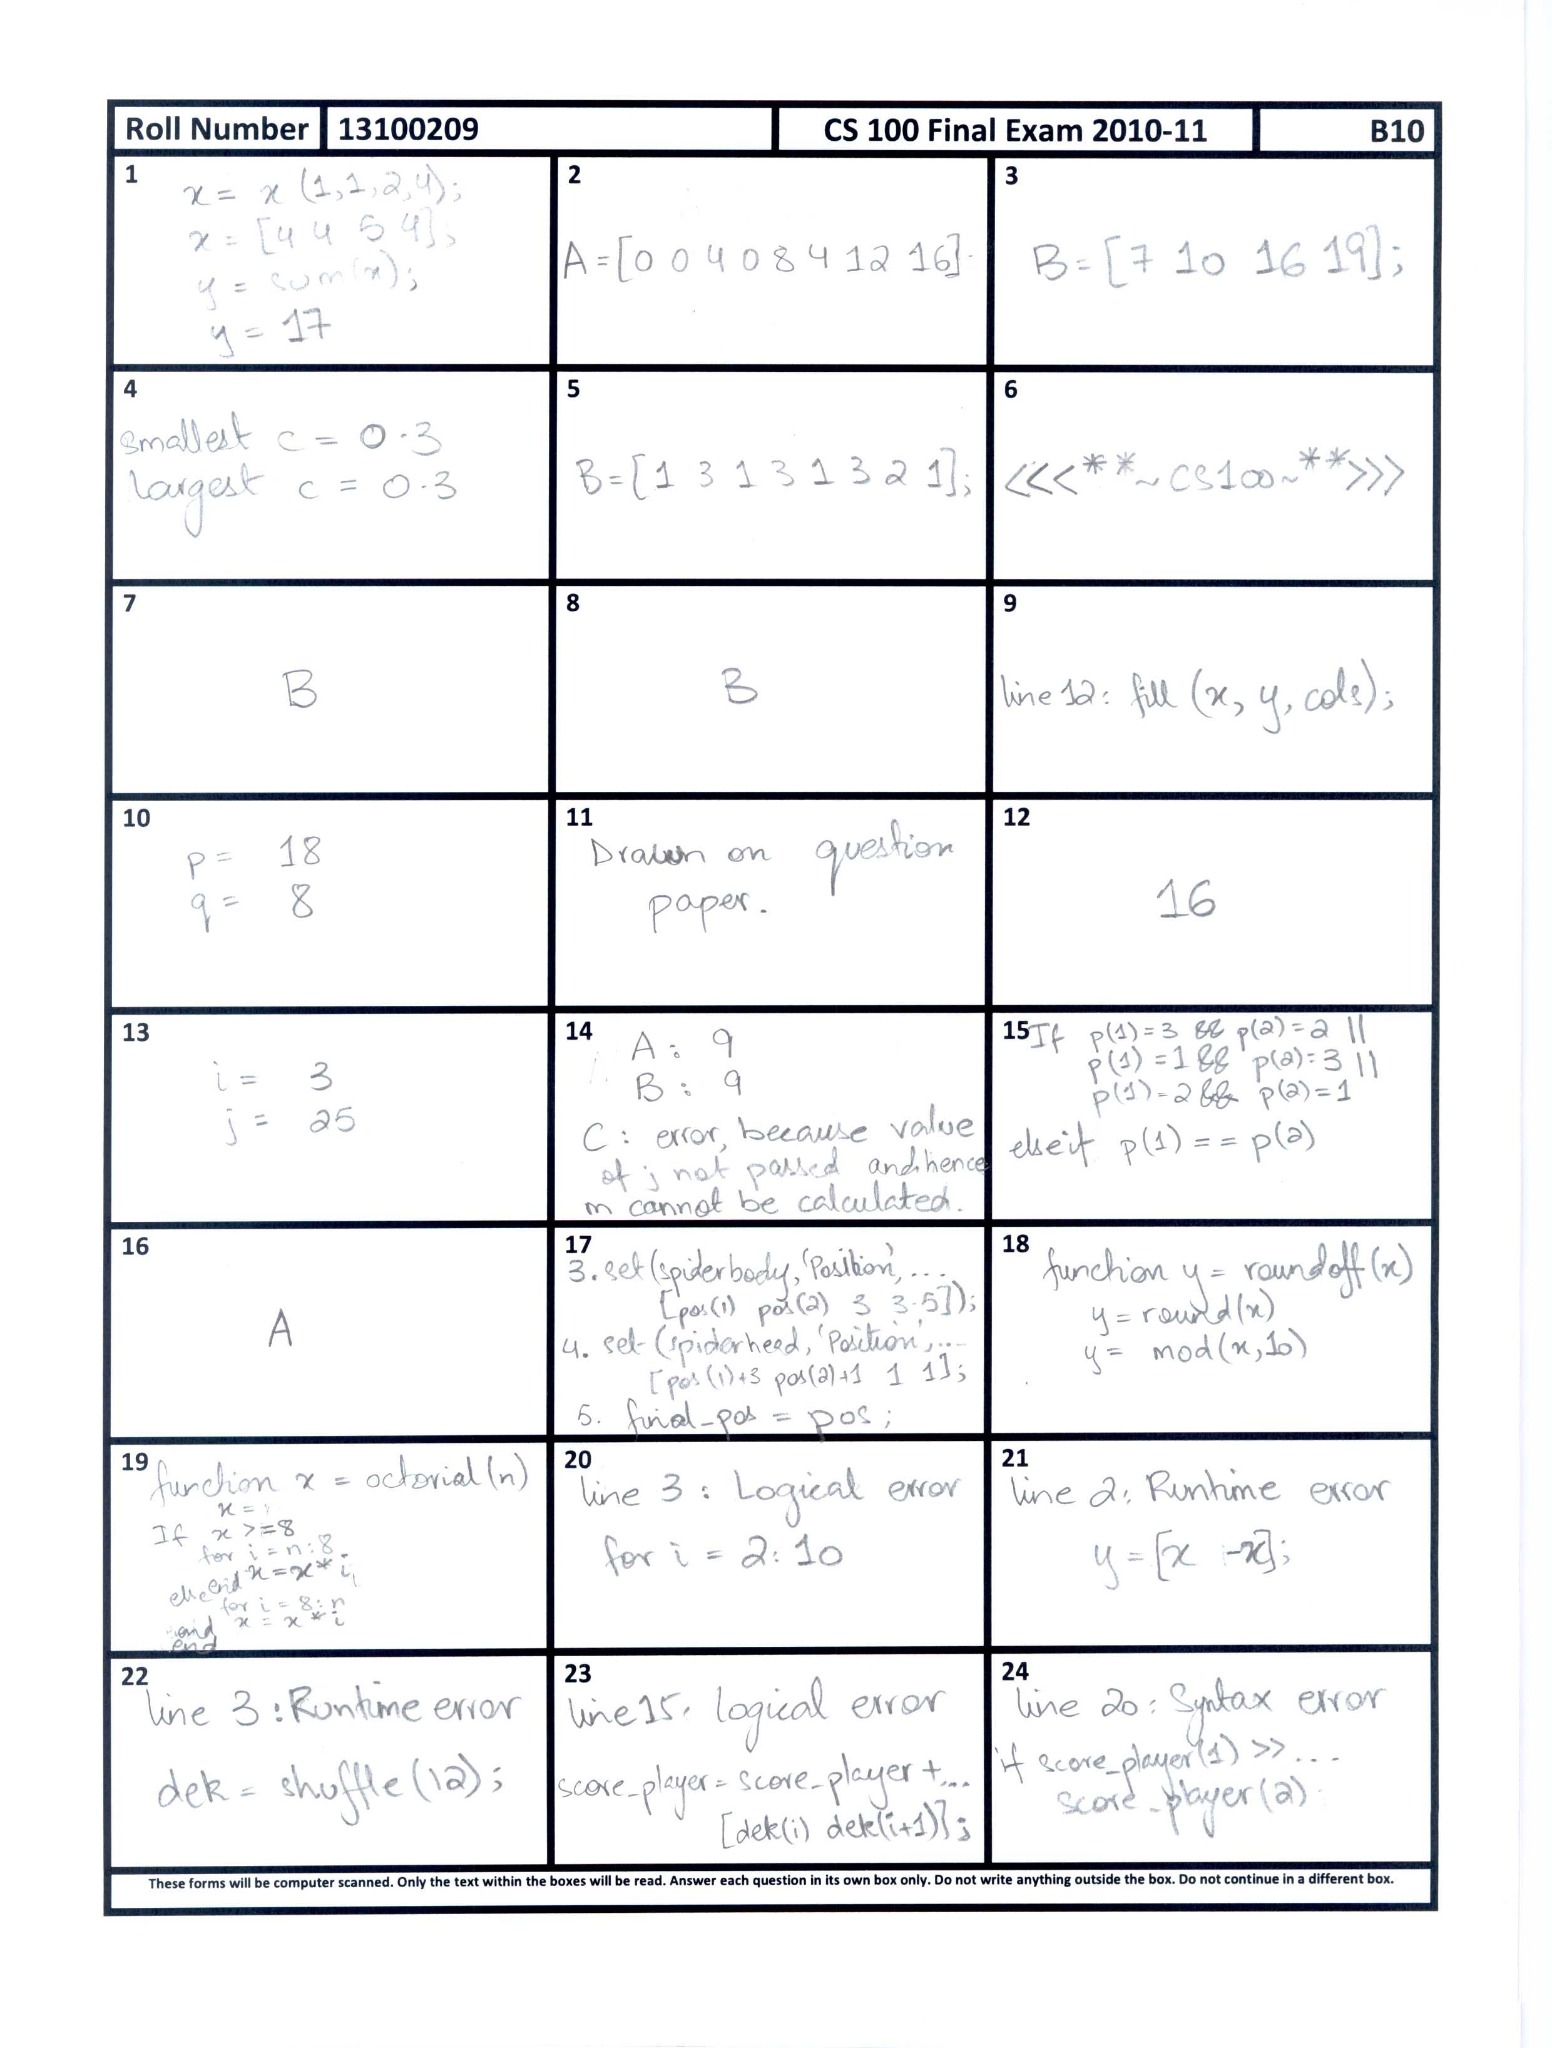 Roll Number 13100209 CS 100 Final Exam 2010-11 B10
1
x = x (1,1,2,4);
x = [4 4 5 4];
y = sum(x);
y = 17
2
A=[0 0 4 0 8 4 12 16]
3
B=[7 10 16 19];
4
smallest c = 0.3
largest c = 0.3
5
B=[1 3 1 3 1 3 2 1];
6
<<<**~CS100~**>>>
7
B
8
B
9
line 12: fill (x, y, cols);
10
p = 18
q = 8
11
Drawn on question
paper.
12
16
13
i = 3
j = 25
14
A: 9
B: 9
C: error, because value
of j not passed and hence
m cannot be calculated.
15 If p(1)=3 && p(2)=2 ||
p(1)=1 && p(2)=3 ||
p(1)=2 && p(2)=1
elseif p(1) == p(2)
16
A
17
3. set(spiderbody,'Position',...
[pos(1) pos(2) 3 3.5]);
4. set(spiderhead,'Position',...
[pos(1)+3 pos(2)+1 1 1];
5. final_pos = pos;
18
function y = roundoff(x)
y = round(x)
y = mod(x,10)
19
function x = octorial(n)
x =
If x >=8
for i = n:8
end x = x * i;
for i = 8:n
end x = x * i
end
20
line 3: Logical error
for i = 2:10
21
line 2: Runtime error
y = [x -x];
22
line 3: Runtime error
dek = shuffle(12);
23
line 15: logical error
score_player = score_player +...
[dek(i) dek(i+1)];
24
line 20: Syntax error
if score_player(1) >> ...
score_player(2)
These forms will be computer scanned. Only the text within the boxes will be read. Answer each question in its own box only. Do not write anything outside the box. Do not continue in a different box.